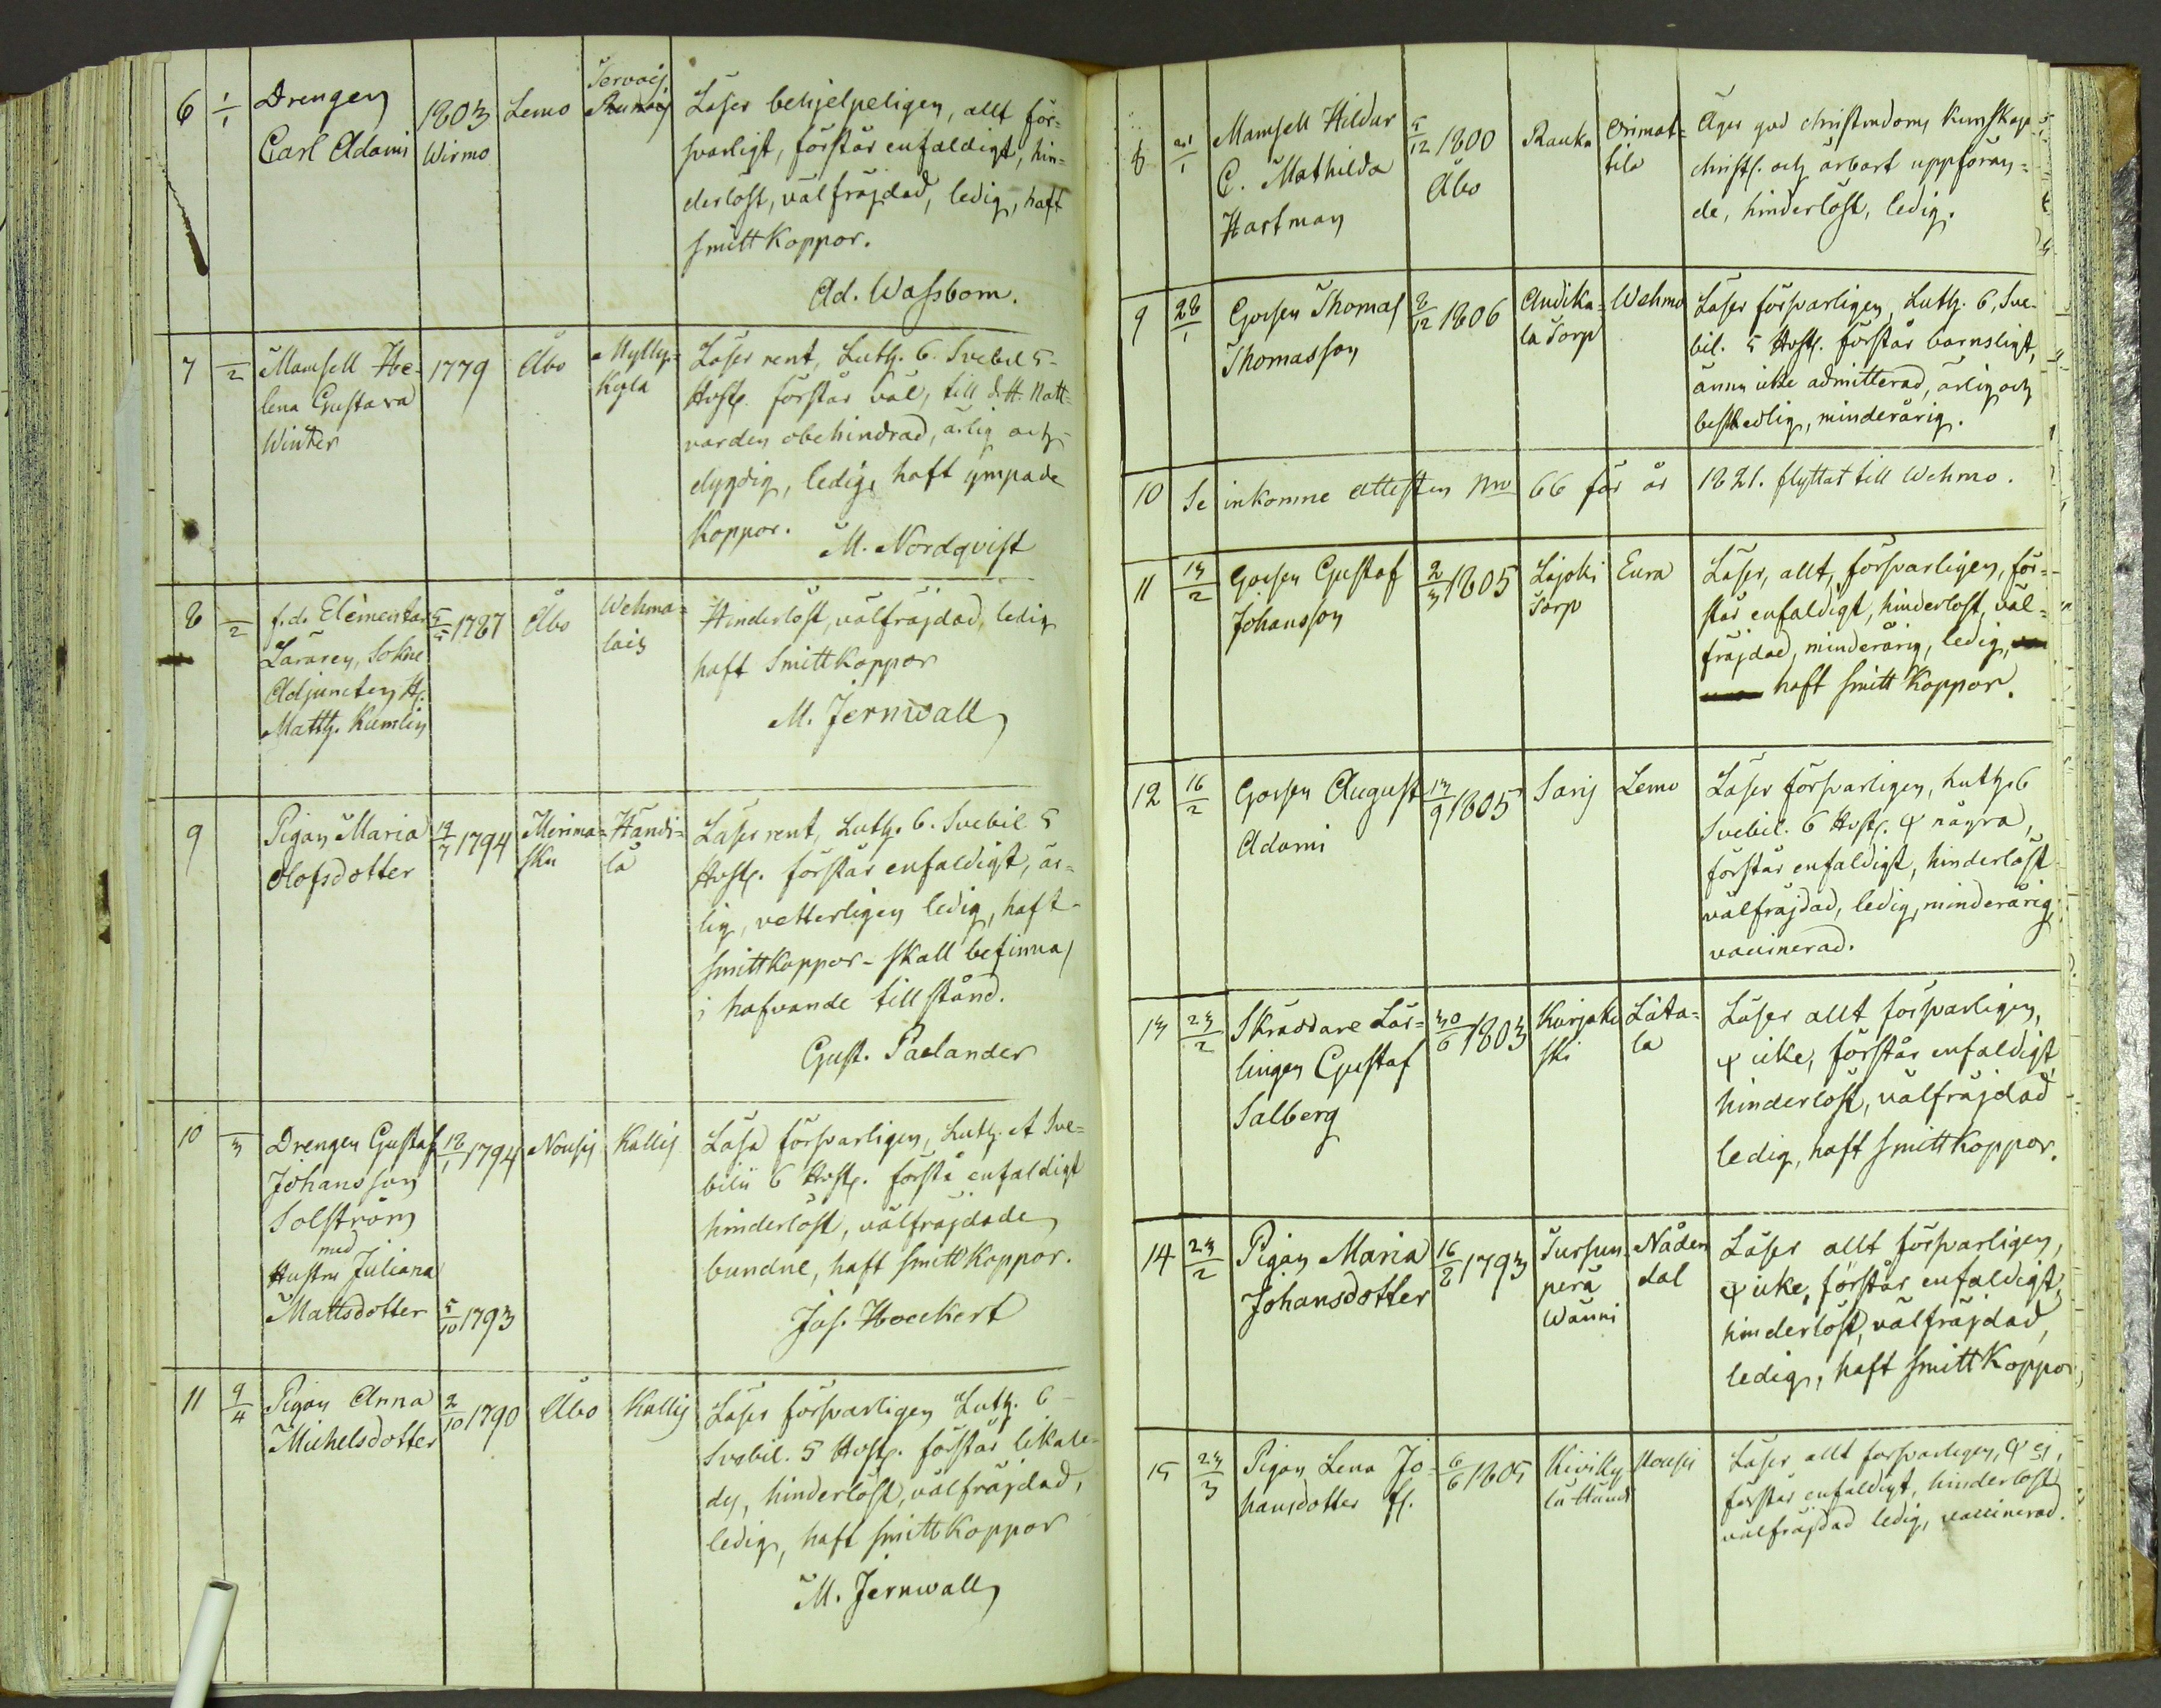 6 1/1 Drengen
Carl Adami
1803
Wirmo
Lemo
Tervois
Läser behjelpeligen, allt för=
svarligt, förstår enfaldigt, hin=
derlöst, välfräjdad, ledig, haft
smittkoppor.
Ad. Wassbom.
7 /2 Mamsell He-
lena Gustava
Winter
1779
Åbo
Mylly=
Kyla
Läser rent, Luth. 6. Svebil 5-
Hvst. förstår väl, till d. H. Natt=
varden obehindrad, ärlig och
dygdig, ledig, haft ympade
Koppor.
M. Nordqvist
8 /2 f.d. Elementar
Läraren, Sokne
Adjuncten H.
Matth. Kumlin
5/5 1787
Åbo
Wehma=
lais
Hinderlöst, välfräjdad, ledig
haft Smittkoppor
M. Jernwall
9 Pigan Maria
Olofsdotter
19/7 1794
Merima=
sku
Handi=
la
Läser rent, Luth. 6. Svebil 5
Hvst. förstår enfaldigt, är=
lig, vetterligen ledig, haft
smittkoppor - skall befinnas
i hafvande tillstånd.
Gust. Paelander
10 /3 Drengen Gustaf
Johansson
Solström
med
Hustru Juliana
Mattsdotter
18/1 1794
5/10 1793
Nousis
Kallis
Läsa försvarligen, Luth. et Sve=
bilii 6 Hvst. förstå enfaldigt
hinderlöst, välfräjdade
bundne, haft smittkoppor.
Jos. Hoeckert
11 9/4 Pigan Anna
Michelsdotter
2/10 1790
Åbo
Kallis
Läser försvarligen Luth. 6
Svebil. 5 Hvst. förstår likale=
des, hinderlöst, välfräjdad,
ledig, haft smittkoppor
M. Jernwall
8 21/1 Mamsell Hildur
C. Mathilda
Hartman
5/12 1800
Åbo
Rauku
Orimat=
tila
Äger god christendoms kunskap
christl. och ärbart uppföran=
de, hinderlöst, ledig.
9 28/1 Gossen Thomas
Thomasson
8/12 1806
Andika=
la Torp
Wehmo
Läser försvarligen, Luth. 6, Sve-
bil. 5 Hvst. förstår barnsligt,
ännu icke admitterad, ärlig och
beskedlig, minderårig.
10 Se inkomne attesten No 66 för år 1821. flyttat till Wehmo.
11 13/2 Gossen Gustaf
Johansson
2/3 1805
Lajoki
Torp
Eura
Läser, allt, försvarligen, för=
står enfaldigt, hinderlöst, väl=
fräjdad, minderårig, ledig,
haft smittkoppor.
12 16/2 Gossen August
Adami
13/9 1805
Saris
Lemo
Läser försvarligen, Luth. 6
Svebil. 6 Hvst. φ några,
förstår enfaldigt, hinderlöst
välfräjdad, ledig, minderårig,
vaccinerad.
13 23/2 Skräddare Lär=
lingen Gustaf
Salberg
30/6 1803
Karjako
ski
Läta=
la
Läser allt försvarligen,
φ icke, förstår enfaldigt
hinderlöst, välfräjdad
ledig, haft smittkoppor.
14 23/2 Pigan Maria
Johansdotter
16/2 1793
Tursun
perä
Wäuni
Nåden
dal
Läser allt försvarligen,
φ icke, förstår enfaldigt,
hinderlöst, välfräjdad,
ledig, haft smittkoppor
15 23/3 Pigan Lena Jo-
hansdotter
6/6 1805
Kiviky
Nousis
Läser allt försvarligen, φ ej,
förstår enfaldigt, hinderlöst
välfräjdad ledig, vaccinerad.